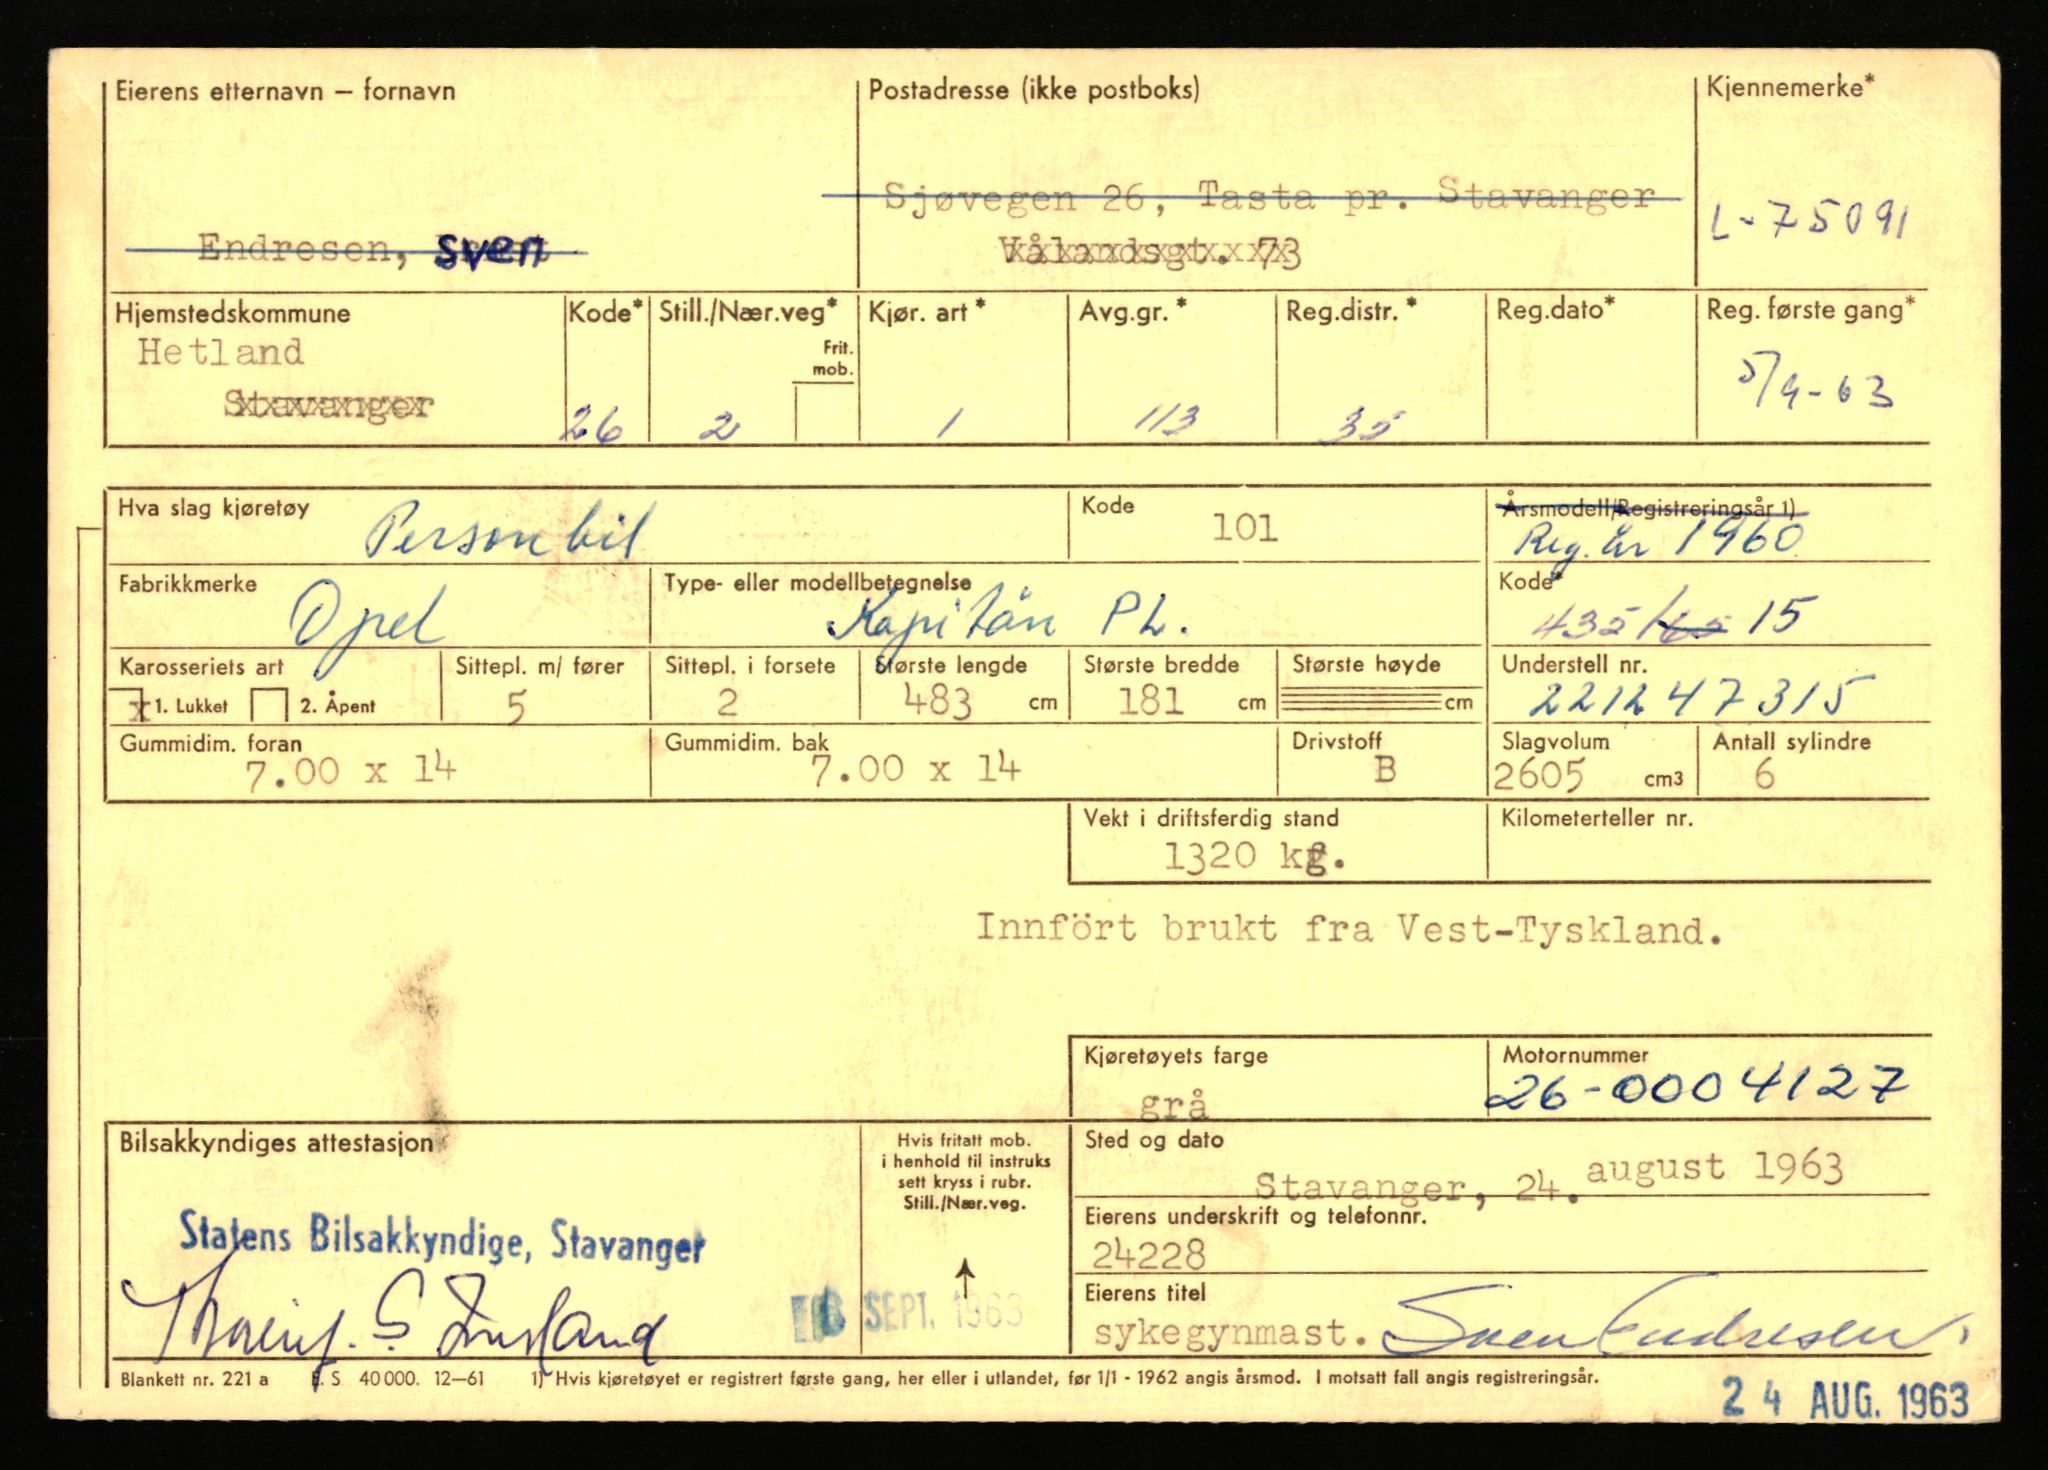 Eierens etternavn – fornavn
Postadresse (ikke postboks)
Kjennemerke*
Sjøvegen 26, Tasta pr. Stavanger
L-75091
Endresen, sven
Vålandsgt. 73
Hjemstedskommune
Kode*
Still./Nær.veg*
Frit. mob.
Kjør. art*
Avg.gr.*
Reg.distr.*
Reg.dato*
Reg. første gang*
Hetland
Stavanger
26
2
1
113
35
5/9-63
Hva slag kjøretøy
Personbil
Kode
101
Årsmodell/Registreringsår 1)
Reg. år 1960
Fabrikkmerke
Opel
Type- eller modellbetegnelse
Kapitän PL.
Kode*
435/ 15
Karosseriets art
x 1. Lukket 2. Åpent
Sittepl. m/ fører
5
Sittepl. i forsete
2
Største lengde
483 cm
Største bredde
181 cm
Største høyde
cm
Understell nr.
221247315
Gummidim. foran
7.00 x 14
Gummidim. bak
7.00 x 14
Drivstoff
B
Slagvolum
2605 cm3
Antall sylindre
6
Vekt i driftsferdig stand
1320 kg.
Kilometerteller nr.
Innfört brukt fra Vest-Tyskland.
Kjøretøyets farge
grå
Motornummer
26-0004127
Bilsakkyndiges attestasjon
Hvis fritatt mob.
i henhold til instruks
sett kryss i rubr.
Still./Nær.veg.
Sted og dato
Stavanger, 24. august 1963
Statens Bilsakkyndige, Stavanger
Eierens underskrift og telefonnr.
24228
SEPT. 1963
Eierens titel
sykegynmast. Sven Endresen.
Blankett nr. 221 a E. S 40 000. 12–61 1) Hvis kjøretøyet er registrert første gang, her eller i utlandet, før 1/1 - 1962 angis årsmod. I motsatt fall angis registreringsår.
24 AUG. 1963